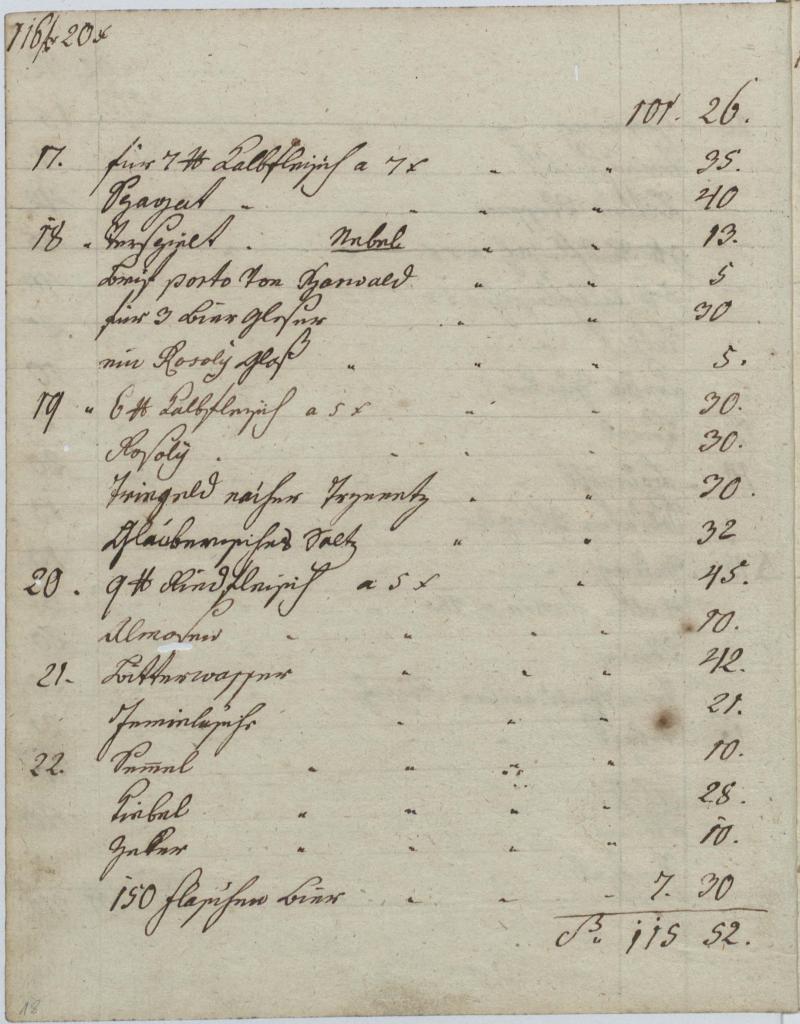 116 f 20 x
101. 26.
17. für 7 ℔ Kalbfleisch a 7 x " " 35.
Spagat " " " " 40
18 " Verspielt . Nebel " " 13.
Brif porto von " " 5
für 3 Bier Gleser " " 30
ein Rosoly Glaß " " " 5.
19 " 6 ℔ Kalbfleisch a 5 x " " 30.
Rosoly . " " " 30.
Tringeld " " 30.
Glauberisches Saltz " " 32
20. 9 ℔ Rindfleisch a 5 x " 45.
Almosen " " " " 10.
21. Bitterwasser " " " 42.
" " " 21.
22. Semmel " " " " 10.
" " " " 28.
" " " " 10.
150 flaschen Bier " " " 7. 30
115 52.
18